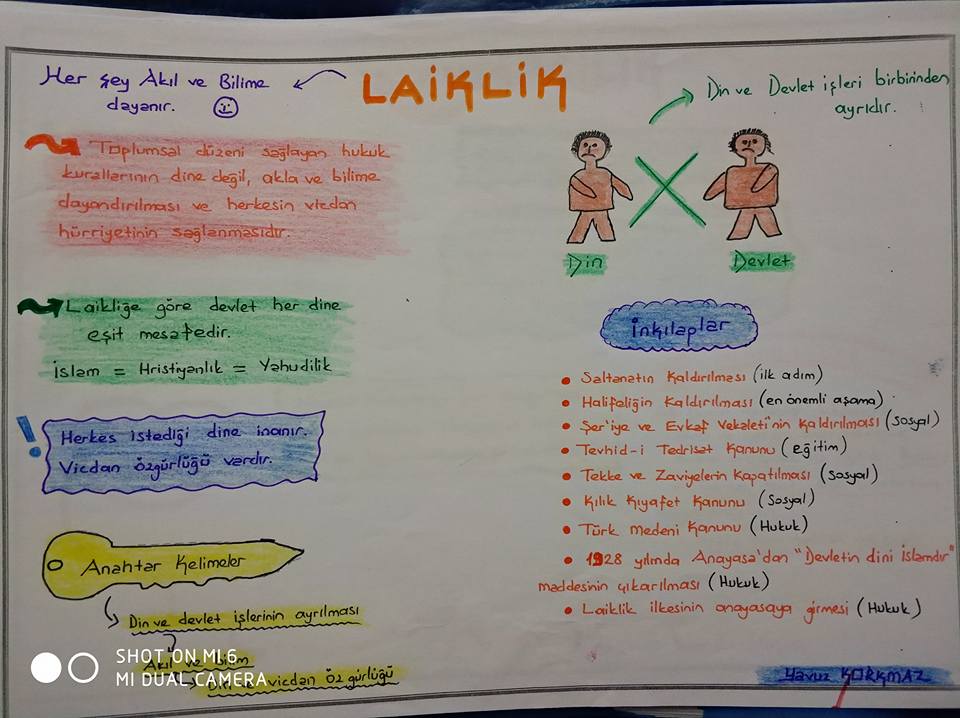 LAİKLİK
Her şey Akıl ve Bilime
dayanır.
Toplumsal düzeni sağlayan hukuk
kurallarının dine değil, akla ve bilime
dayandırılması ve herkesin vicdan
hürriyetinin sağlanmasıdır.
Laikliğe göre devlet her dine
eşit mesafedir.
İslam = Hristiyanlık = Yahudilik
! Herkes istediği dine inanır.
Vicdan özgürlüğü vardır.
Anahtar Kelimeler
Din ve devlet işlerinin ayrılması
Akıl ve bilim
Din ve vicdan özgürlüğü
Din ve Devlet işleri birbirinden
ayrıdır.
Din
Devlet
İnkılaplar
• Saltanatın Kaldırılması (ilk adım)
• Halifeliğin Kaldırılması (en önemli aşama)
• Şer'iye ve Evkaf Vekaleti'nin Kaldırılması (sosyal)
• Tevhid-i Tedrisat Kanunu (eğitim)
• Tekke ve Zaviyelerin Kapatılması (sosyal)
• Kılık Kıyafet Kanunu (Sosyal)
• Türk medeni Kanunu (Hukuk)
• 1928 yılında Anayasa'dan "Devletin dini islamdır"
maddesinin çıkarılması (Hukuk)
• Laiklik ilkesinin anayasaya girmesi (Hukuk)
Yavuz KORKMAZ
SHOT ON MI 6
MI DUAL CAMERA